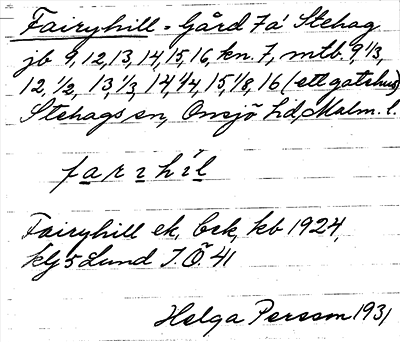 Fairyhill - Gård 7 å Stehag
jb 9, 12, 13, 14, 15, 16, kn. 7, mtl. 9, 1/3,
12, 1/2, 13, 1/3, 14, 1/4, 15, 1/8, 16 (ett gatehus)
Stehags sn, Onsjö hd, Malm. l.
farihil
Fairyhill ek, bsk, kb 1924,
klj 5 Lund I.Ö. 41
Helga Persson 1931